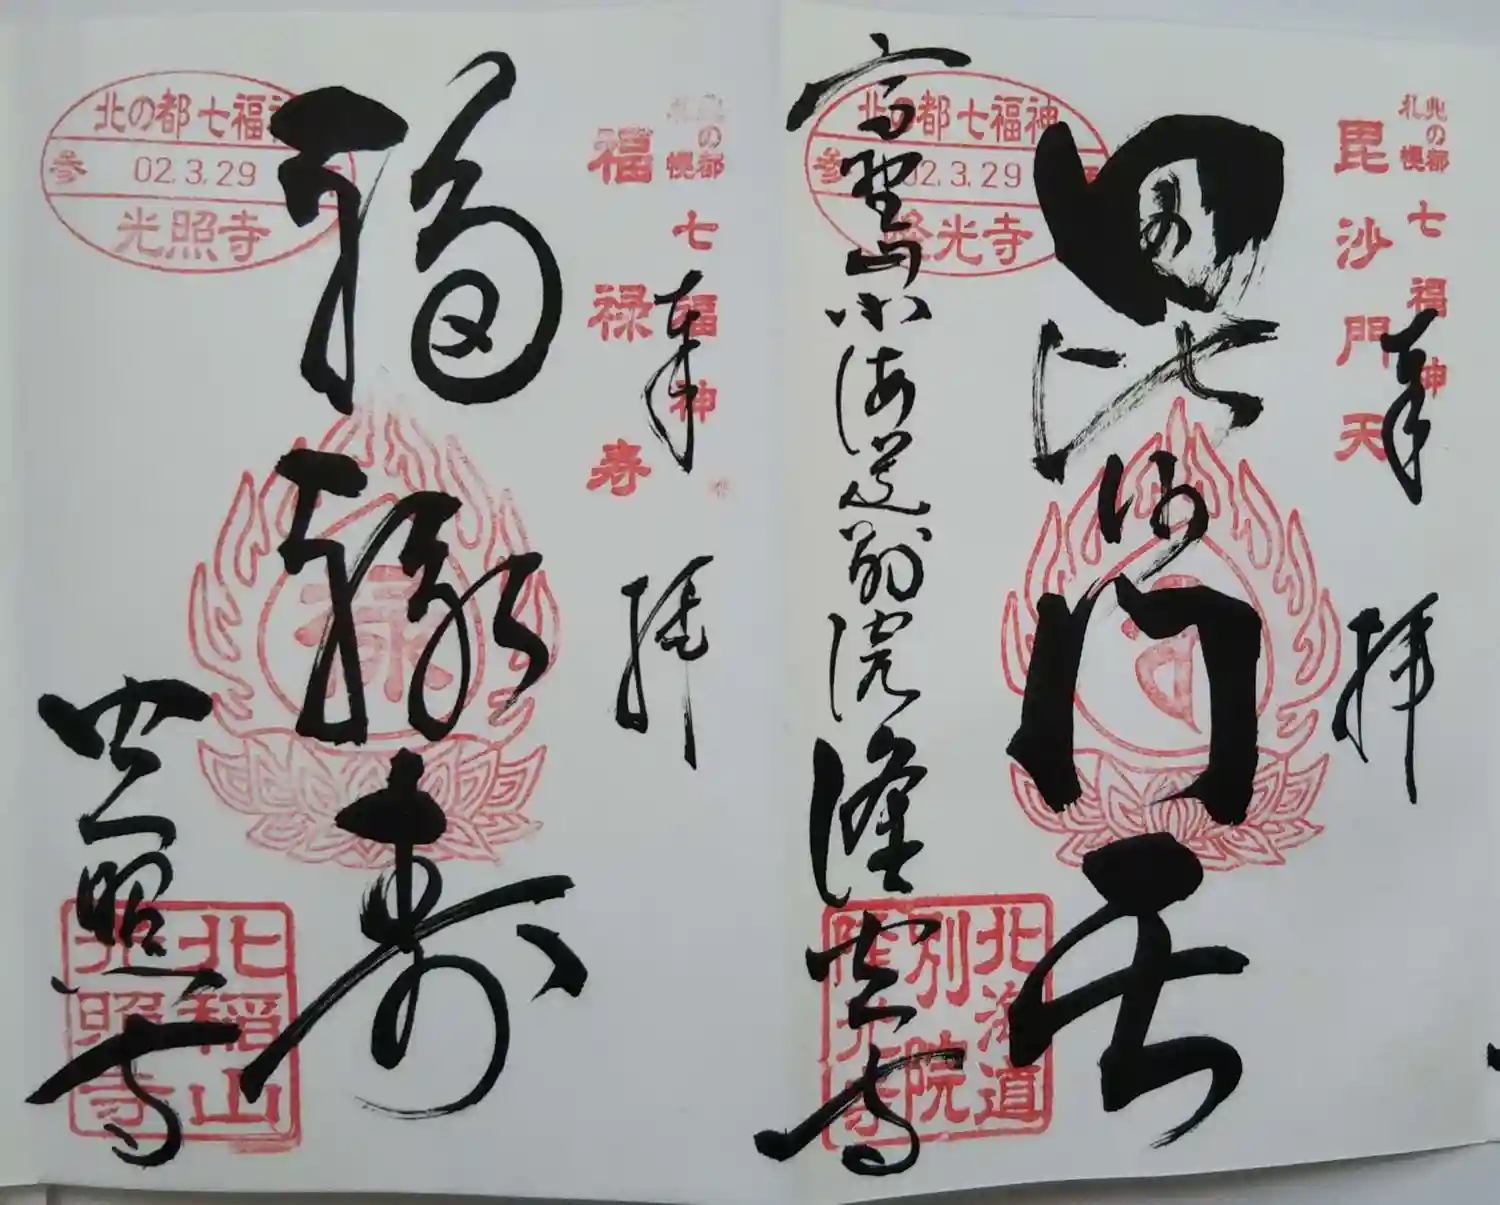 毘沙門天
北の都
札幌
七福神
奉拝
毘沙門天
北の都七福神
参
02.3.29
隆光寺
高野山北海道別院隆光寺
北海道
別院
隆光寺
福禄寿
北の都
札幌
七福神
奉拝
福禄寿
禄
北の都七福神
参
02.3.29
光照寺
光照寺
北稲山
光照寺